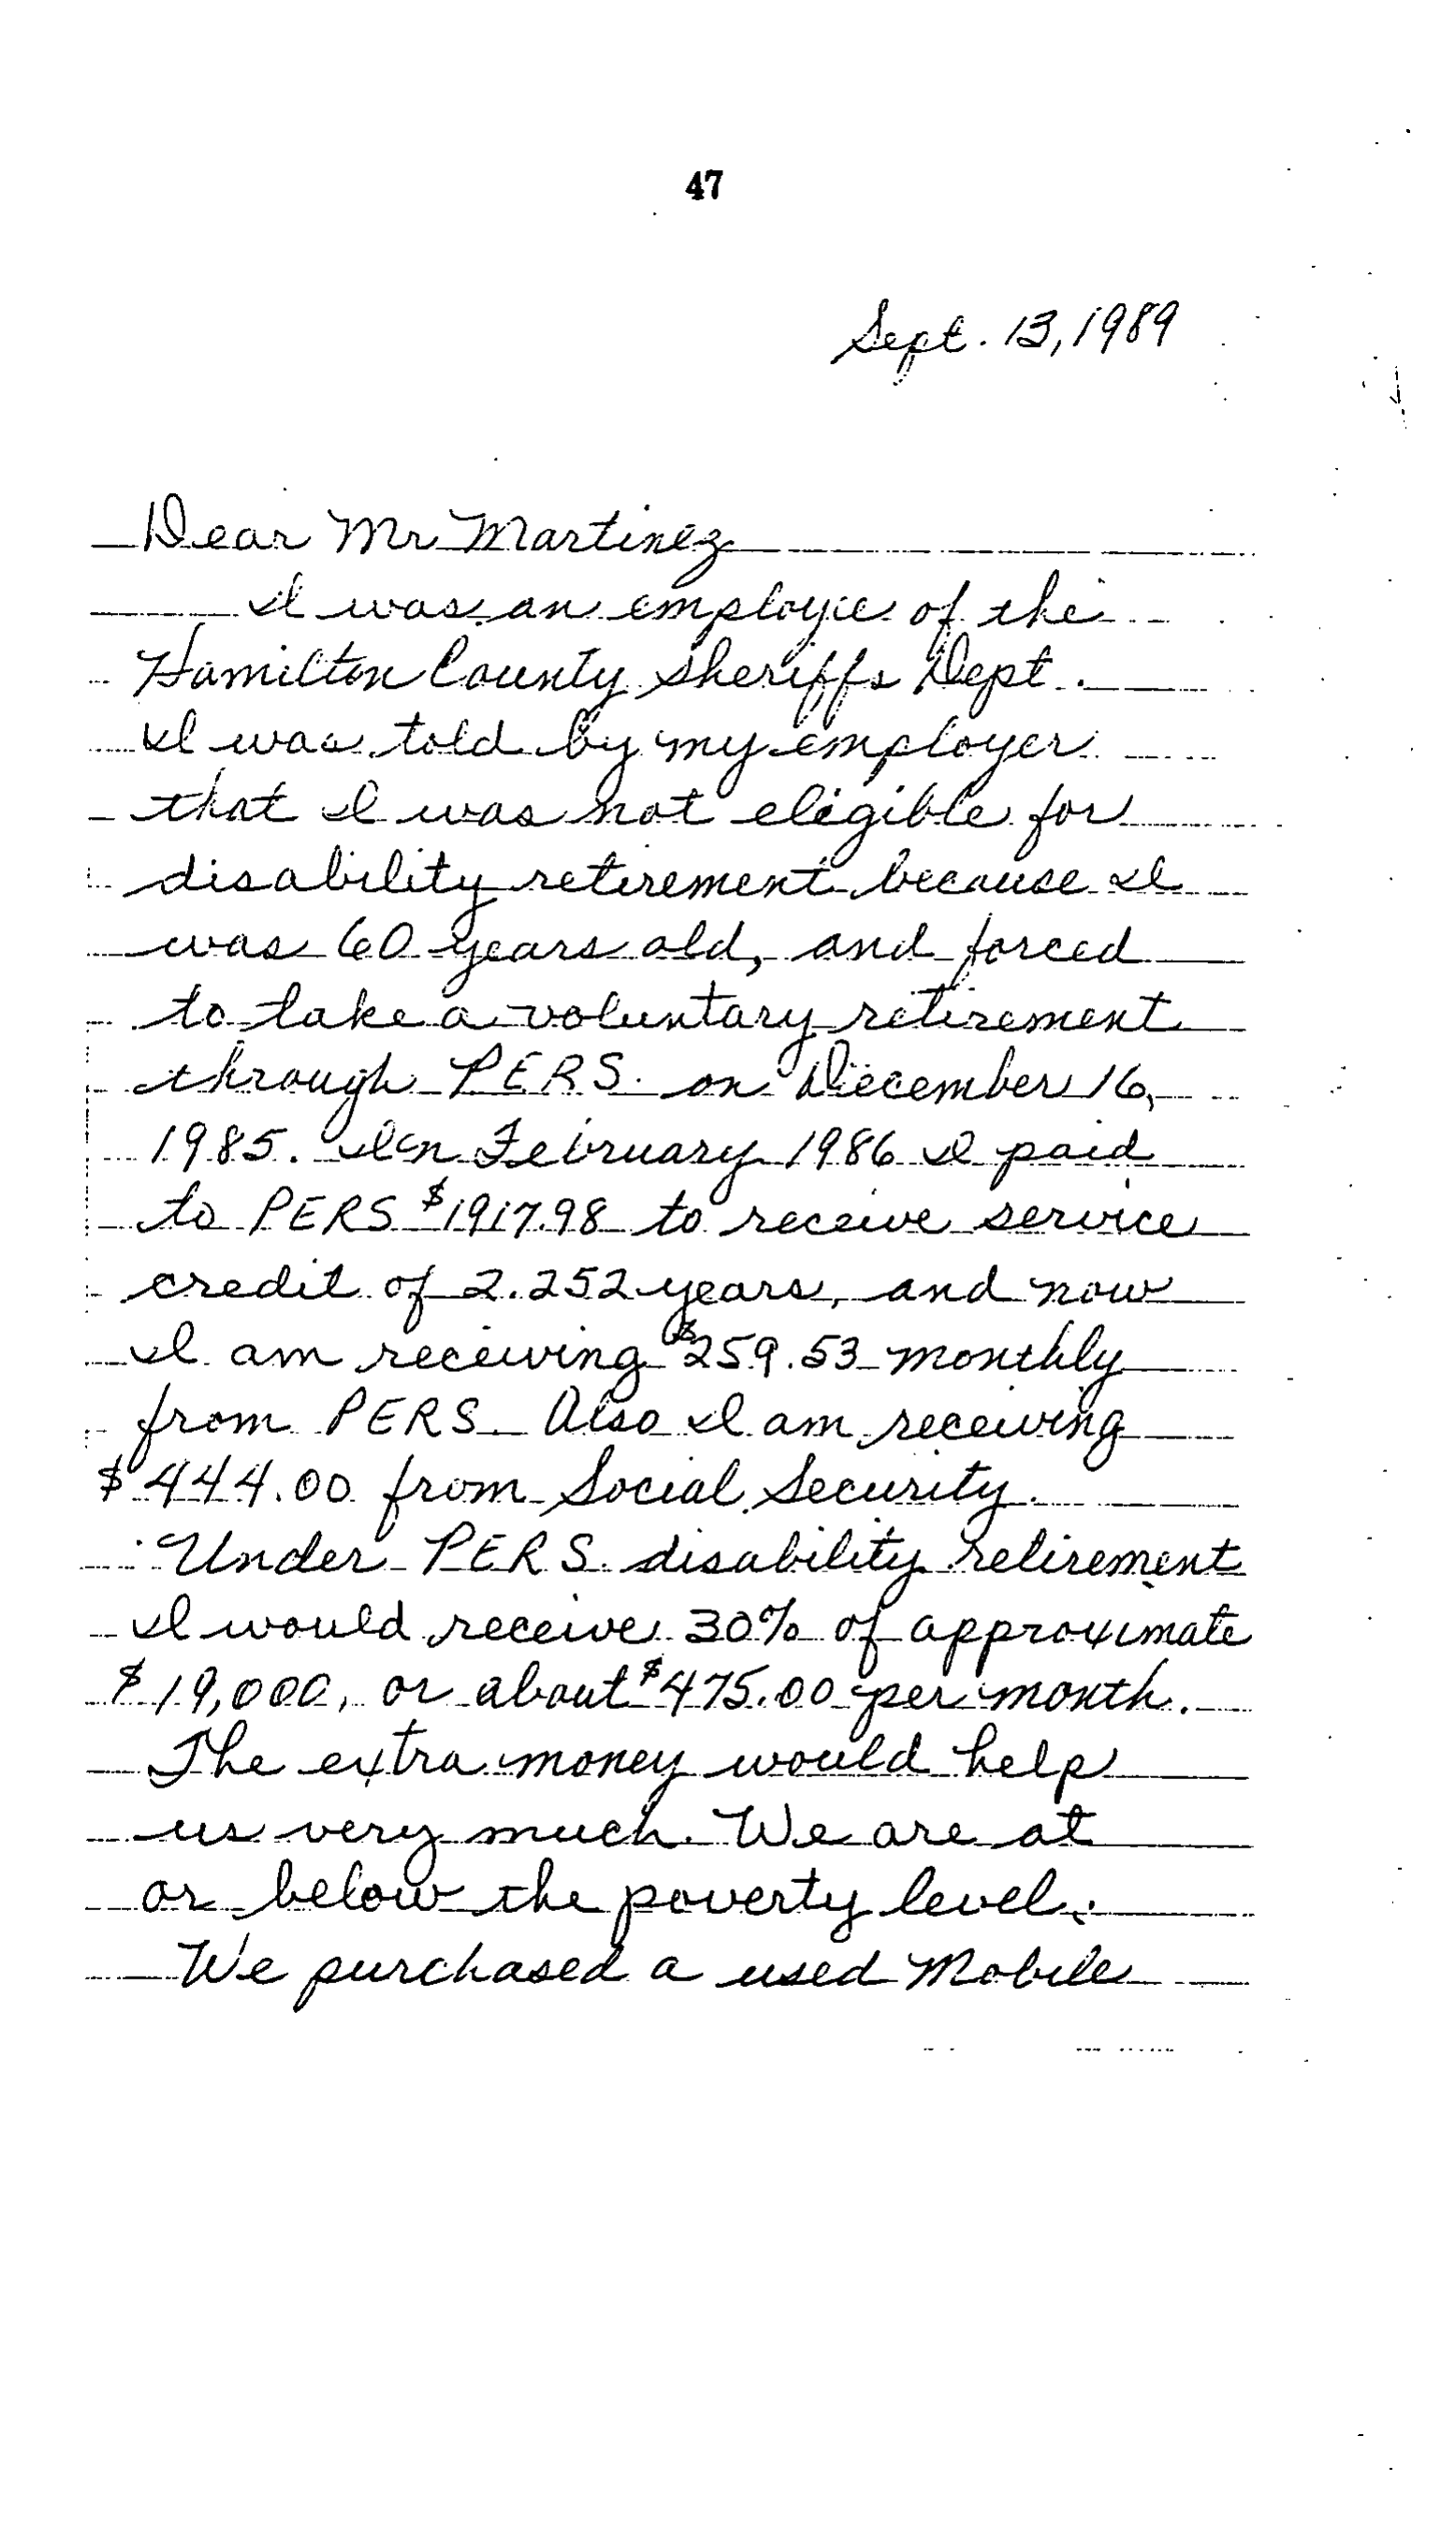 47
Sept. 13, 1989
Dear Mr Martinez
I was an employee of the
Hamilton County Sheriffs Dept.
I was told by my employer
that I was not eligible for
disability retirement because I
was 60 years old, and forced
to take a voluntary retirement
through PERS. on December 16,
1985. In February 1986 I paid
to PERS $1917.98 to receive service
credit of 2.252 years, and now
I am receiving $259.53 monthly
from PERS. Also I am receiving
$444.00 from Social Security.
Under PERS. disability retirement
I would receive 30% of approximate
$19,000, or about $475.00 per month.
The extra money would help
us very much. We are at
or below the poverty level.
We purchased a used Mobile